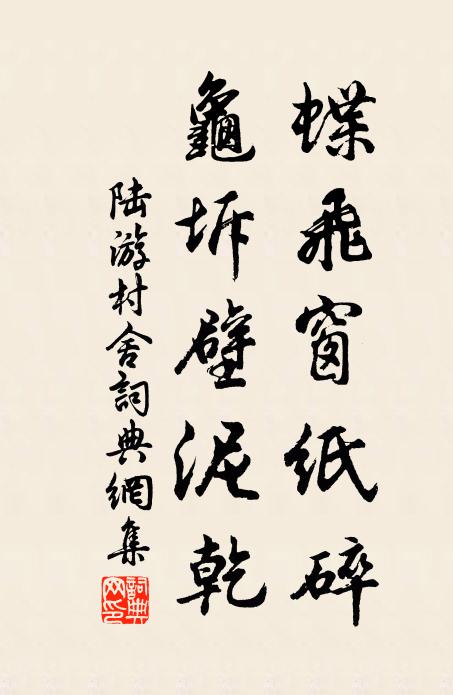 蝶飛窗紙碎
龜坼壁泥乾
陆游村舍詞典網集
詞典网印